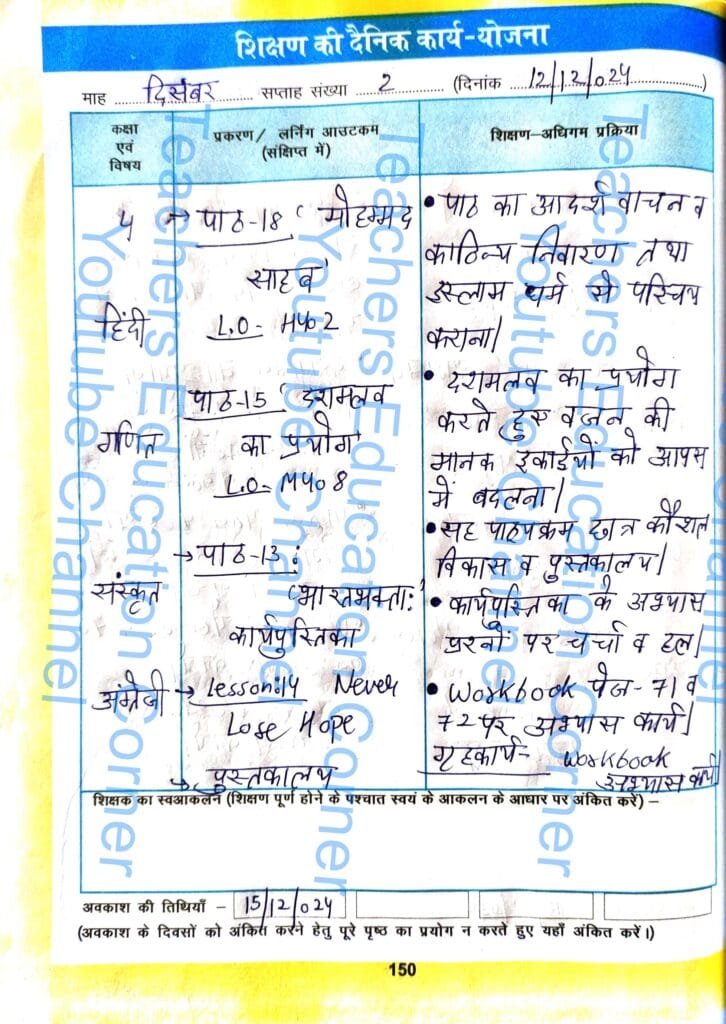 शिक्षण की दैनिक कार्य-योजना
माह ....दिसंबर.... सप्ताह संख्या ....2.... (दिनांक ....12/12/024....)
कक्षा एवं विषय
प्रकरण/ लर्निंग आउटकम
(संक्षिप्त में)
शिक्षण-अधिगम प्रक्रिया
4
→ पाठ-18 ‘मोहम्मद
साहब’
L.O- H402
• पाठ का आदर्श वाचन व
काठिन्य निवारण तथा
इस्लाम धर्म से परिचय
कराना।
हिंदी
गणित
पाठ-15 ‘दशमलव
का प्रयोग’
L.O- M408
• दशमलव का प्रयोग
करते हुए वजन की
मानक इकाईयों को आपस
में बदलना।
• सह पाठ्यक्रम छात्र कौशल
विकास व पुस्तकालय।
संस्कृत
→ पाठ-13:
‘भारतभक्ता:’
कार्यपुस्तिका
• कार्यपुस्तिका के अभ्यास
प्रश्नों पर चर्चा व हल।
अंग्रेजी
→ Lesson:14 Never
Lose Hope
→ पुस्तकालय
• Workbook पेज- 71 व
72 पर अभ्यास कार्य।
गृहकार्य- Workbook
अभ्यास कार्य।
शिक्षक का स्वआकलन (शिक्षण पूर्ण होने के पश्चात स्वयं के आकलन के आधार पर अंकित करें) –
अवकाश की तिथियाँ – 15/12/024
(अवकाश के दिवसों को अंकित करने हेतु पूरे पृष्ठ का प्रयोग न करते हुए यहाँ अंकित करें।)
150
Teachers Education Corner
Youtube Channel
Teachers Education Corner
Youtube Channel
Teachers Education Corner
Youtube Channel